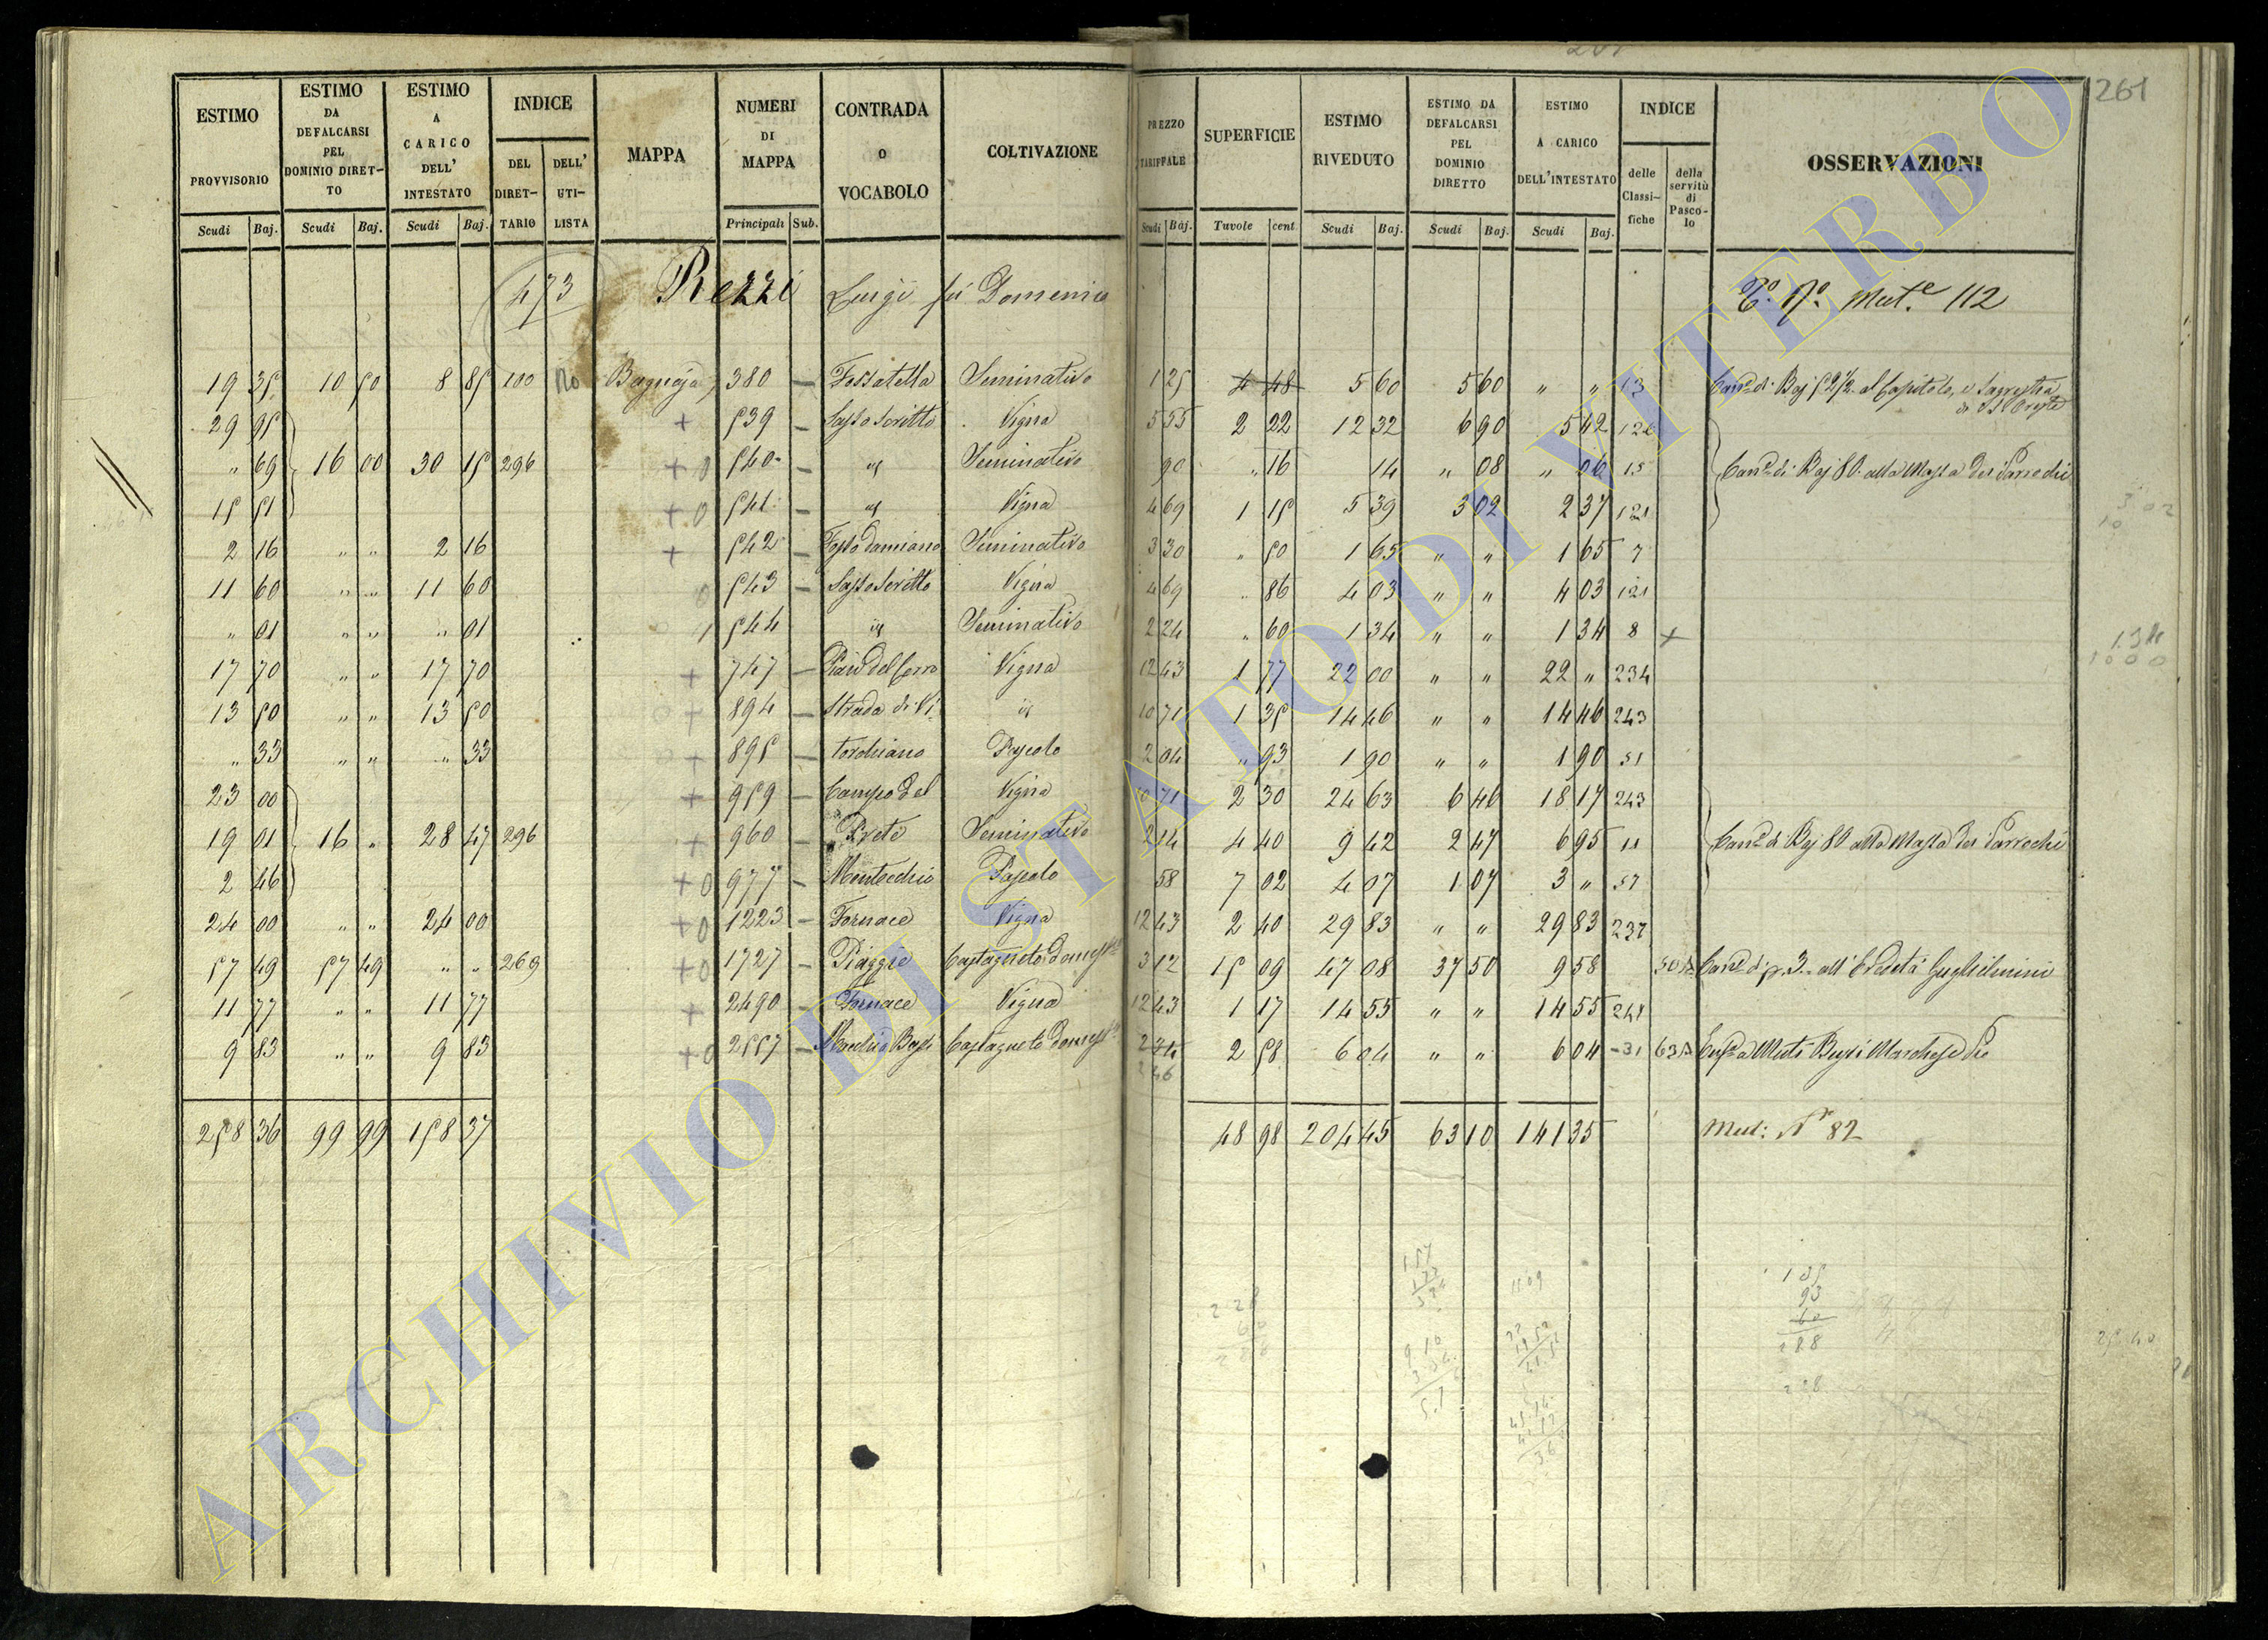 261
ESTIMO PROVVISORIO | ESTIMO DA DEFALCARSI PEL DOMINIO DIRETTO | ESTIMO A CARICO DELL' INTESTATO | INDICE DEL DIRETTARIO | DELL' UTILISTA | MAPPA | NUMERI DI MAPPA | CONTRADA O VOCABOLO | COLTIVAZIONE | PREZZO TARIFFALE | SUPERFICIE | ESTIMO RIVEDUTO | ESTIMO DA DEFALCARSI PEL DOMINIO DIRETTO | ESTIMO A CARICO DELL'INTESTATO | INDICE delle Classifiche | della servitù di Pascolo | OSSERVAZIONI
Scudi Baj. Scudi Baj. Scudi Baj. Principali Sub. Scudi Baj. Tavole cent. Scudi Baj. Scudi Baj. Scudi Baj.
473 Rezzi Luigi fù Domenico 112
19 35 10 50 8 85 100 Bagnaja 380 — Fossatella Seminativo 1 25 4 48 5 60 5 60 " " 13
29 95 + 539 — Sasso Scritto Vigna 5 55 2 22 12 32 6 90 5 42 126
" 69 16 00 30 15 296 + 0 540 — id Seminativo 90 " 16 14 " 08 " 06 15 Can.e di Baj 80 alla Massa dei Parrochi
15 51 + 0 541 — id Vigna 4 69 1 15 5 39 3 02 2 37 121
2 16 " " 2 16 + 542 — Fosso Damiano Seminativo 3 30 " 50 1 65 " " 1 65 7
11 60 " " 11 60 0 543 — Sasso Scritto Vigna 4 69 " 86 4 03 " " 4 03 121
" 01 " " " 01 544 id Seminativo 2 24 " 60 1 34 " " 1 34 8 +
17 70 " " 17 70 + 747 — Pian del Cerro Vigna 12 43 1 77 22 00 " " 22 " 234
13 50 " " 13 50 + 894 — Strada di Vi id 10 71 1 35 14 46 " " 14 46 243
" 33 " " " 33 + 895 — Torchiano Pascolo 2 04 " 93 1 90 " " 1 90 51
23 00 + 959 — Campo del Vigna 10 71 2 30 24 63 6 46 18 17 243
19 01 16 " 28 47 296 + 960 — Prete Seminativo 2 14 4 40 9 42 2 47 6 95 11 Can.e di Baj 80 alla Massa dei Parrochi
2 46 + 0 977 — Montecchio Pascolo 58 7 02 4 07 1 07 3 " 57
24 00 " " 24 00 + 0 1223 — Fornace Vigna 12 43 2 40 29 83 " " 29 83 237
57 49 57 49 " " 269 + 0 1727 — Piaggie Castagneto Domest. 3 12 15 09 47 08 37 50 9 58 Can.e di 3 all'Eredità Guglielmini
11 77 " " 11 77 + 2490 — Fornace Vigna 12 43 1 17 14 55 " " 14 55 241
9 83 " " 9 83 + 0 2557 — Castagneto Domest. 2 34 2 58 6 04 " " 6 04 31 63
2 46
258 36 99 99 158 37 48 98 204 45 63 10 141 35 Mut: N° 82
ARCHIVIO DI STATO DI VITERBO